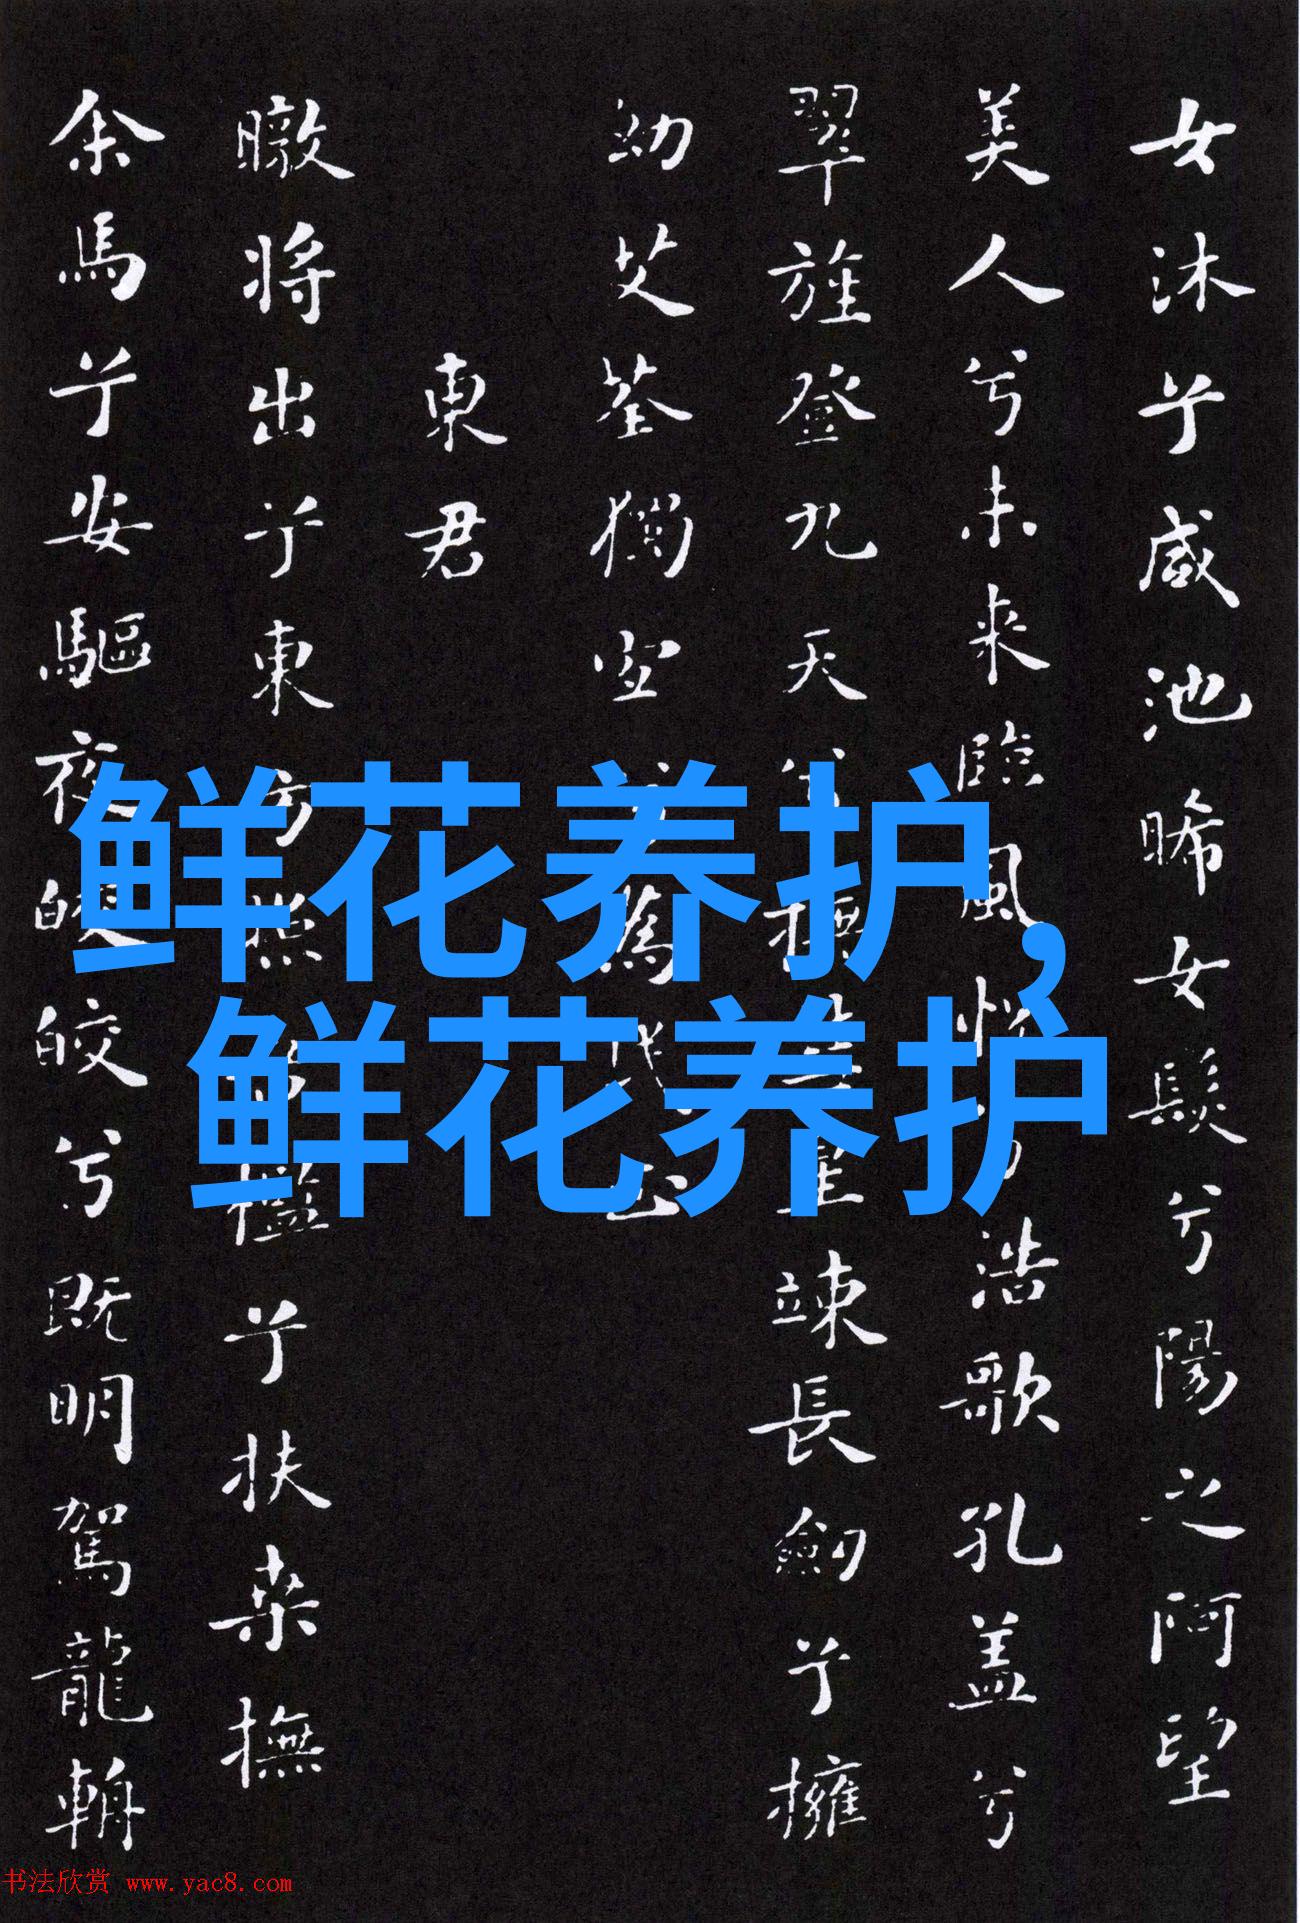 女沐兮咸池晞女髮兮陽之阿望
美人兮未来臨風怳兮浩歌孔盖兮
翠旌登九天兮撫星竦長劍兮擁
幼艾荃獨宜兮為正
東君
暾將出兮東方照檻兮扶桑撫
余馬兮安驅夜皎皎兮既明駕龍輈
鲜花养护，
鲜花养护
书法欣赏 www.yac8.com